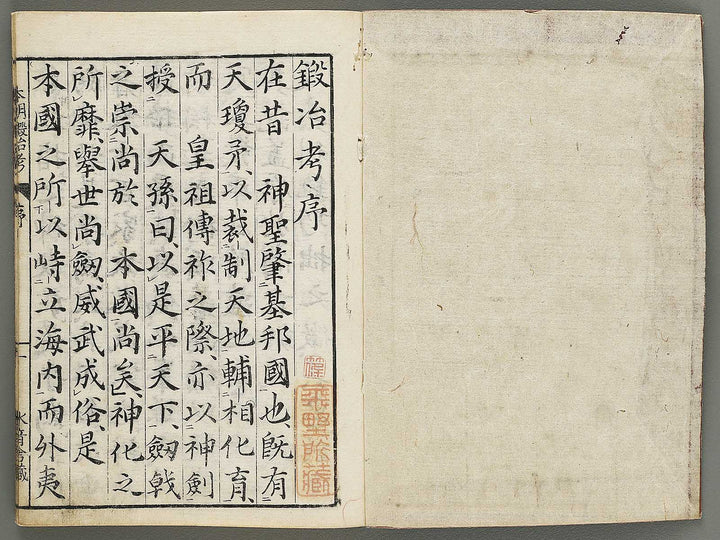 鍛冶考序
在昔 神聖肇基邦國也、既有
天瓊矛、以裁制天地輔相化育、
而 皇祖傳祚之際、亦以神劍
授 天孫曰、以是平天下、劔戟
之崇尚於 本國尚矣、神化之
所靡、擧世尚劔、威武成俗、是
本國之所以峙立海内、而外夷
本朝鍛冶考
序